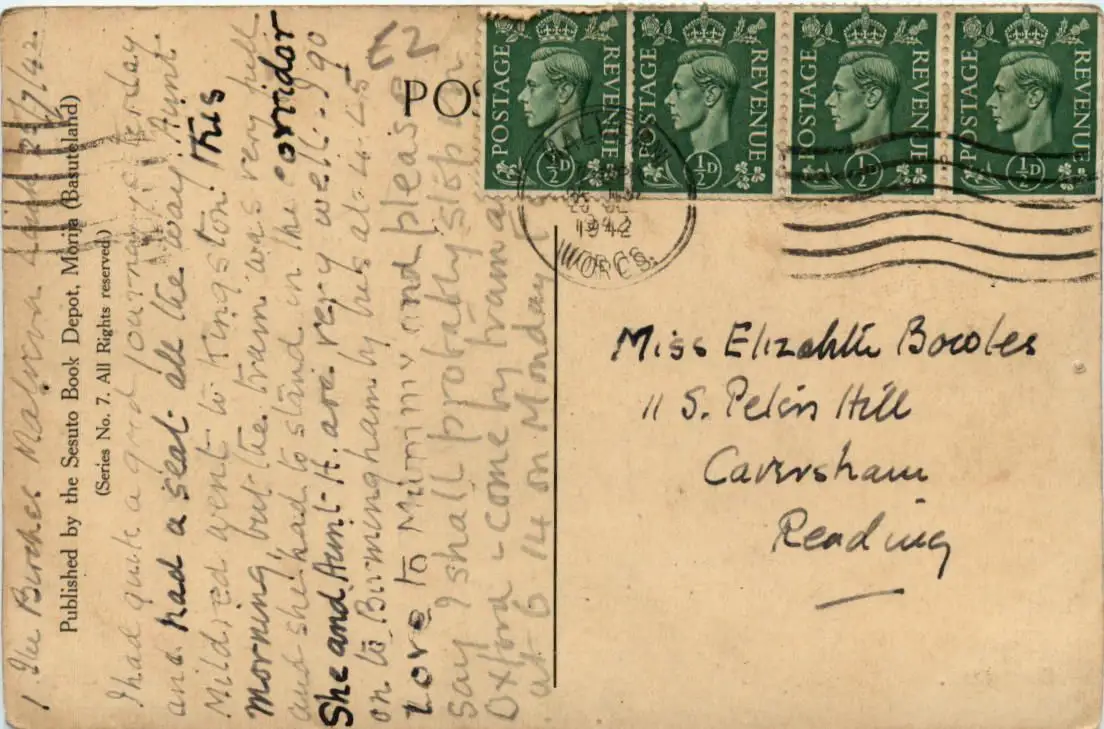 1 The Birches Malvern Link 24/7/42
Published by the Sesuto Book Depot, Morija (Basutoland)
(Series No. 7. All Rights reserved.)
I had quite a good journey yesterday
and had a seat all the way Aunt
Mildred went to Kingston this
morning, but the train was very full
and she had to stand in the corridor
She and Aunt H. are very well - I go
on to Birmingham by bus at 4.45
Love to Mummy and please
say I shall probably stop in
Oxford - come by train
at 6 14 on Monday
POS
POSTAGE REVENUE ½D
POSTAGE REVENUE ½D
POSTAGE REVENUE ½D
POSTAGE REVENUE ½D
1942
WORCS.
Miss Elizabeth Bowles
11 S. Peters Hill
Caversham
Reading